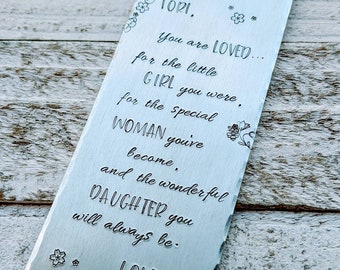 TORI,
You are LOVED...
for the little
GIRL you were,
for the special
WOMAN you've
become,
and the wonderful
DAUGHTER you
will always be.